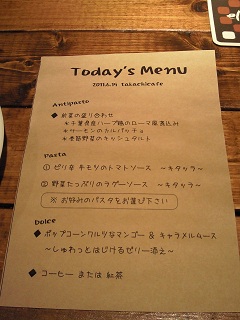 Today's Menu
Antipasto
◆ 前菜の盛り合わせ
＊千葉県産ハーブ鶏のローマ風煮込み
＊サーモンのカルパッチョ
＊季節野菜のキッシュタルト
Pasta
① ピリ辛 キモツのトマトソース ～キタッラ～
② 野菜たっぷりのラグーソース ～キタッラ～
※ お好みのパスタをお選び下さい
Dolce
◆ ポップコーンクルリなマンゴー & キャラメルムース
～しゅわっとはじけるゼリー添え～
◆ コーヒー または 紅茶